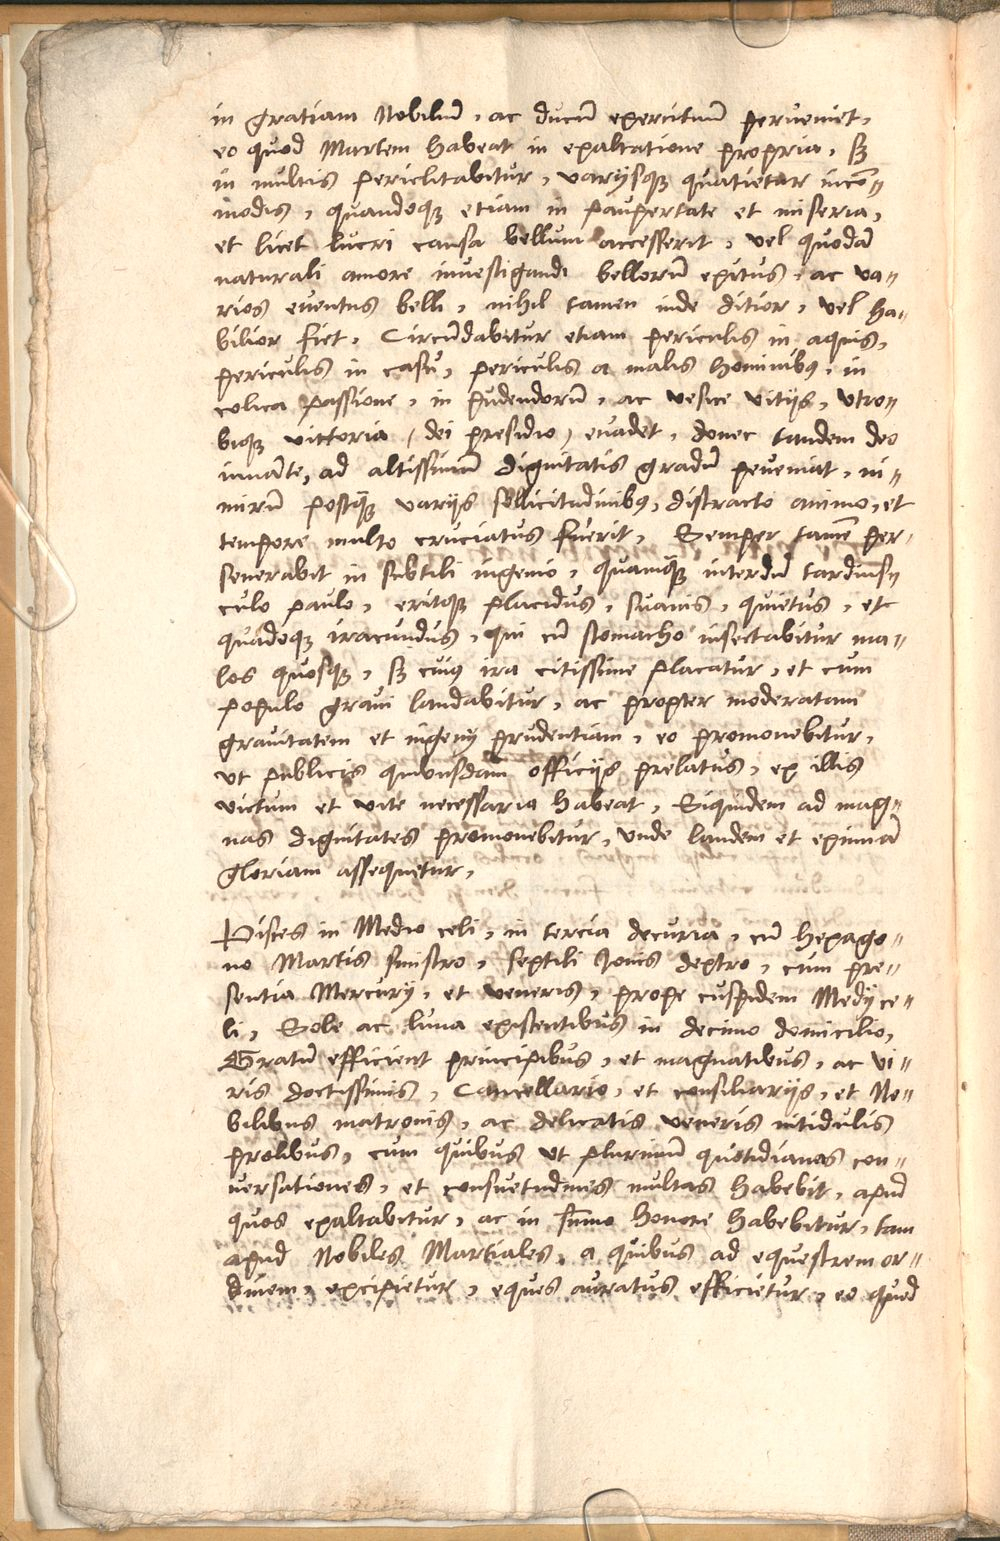 in gratiam Nobiliũ, ac ducũ exercituũ perveniet,
eo quod Martem habeat in exaltatione propria, sꝫ
in multis periclitabitur, varijsqꝫ quatietur incõ=
modis, quandoqꝫ etiam in paupertate et miseria,
et licet lucri causa bellum accesserit, vel quodã
naturali amore investigandi bellorũ exitus, ac va=
rios eventus belli, nihil tamen inde ditior, vel ha=
bilior fiet, Circũdabitur etiam periculis in aquis,
periculis in casu, periculis a malis hominibꝰ, in
colica passione, in pudendorũ, ac vesice vitijs, utro=
biqꝫ vittoria (dei presidio) evadet, donec tandem deo
iuvãte, ad altissimũ dignitatis gradũ peveniat, ni=
mirũ postqꝫ varijs sollicitudinibꝰ, distracto animo, et
tempore multo cruciatus fuerit, Semper tamẽ per=
severabit in subtili ingenio, quamqꝫ interdũ tardius=
culo paulo, eritqꝫ placidus, suavis, quietus, et
quãdoqꝫ iracundus, qui cũ stomacho insectabitur ma=
los quosqꝫ, sꝫ cuiꝰ ira citissime placatur, et cum
populo gravi laudabitur, ac propter moderatam
gravitatem et ingenij prudentiam, eo promovebitur,
ut publicis quibusdam officijs prelatus, ex illis
victum et vite necessaria habeat, Siquidem ad mag=
nas dignitates promovebitur, unde laudem et eximiã
gloriam assequetur,
Pisces in Medio celi, in tercia decuria, cũ hexago=
no Martis sinistro, sextili Jovis dextro, cum pre=
sentia Mercurij, et veneris, prope cuspidem Medij ce=
li, Sole ac luna existentibus in decimo domicilio,
Gratũ efficient principibus, et magnatibus, ac vi=
ris doctissimis, Cancellario, et consiliarijs, et No=
bilibus matronis, ac delicatis veneris nitidulis
prolibus, cum quibus ut plurimũ quotidianas con=
versationes, et consuetudines multas habebit, apud
quos exaltabitur, ac in sũmo honore habebitur, tam
apud Nobiles Martiales, a quibus ad equestrem or=
dinem, excipietur, eques auratus efficietur, eo quod